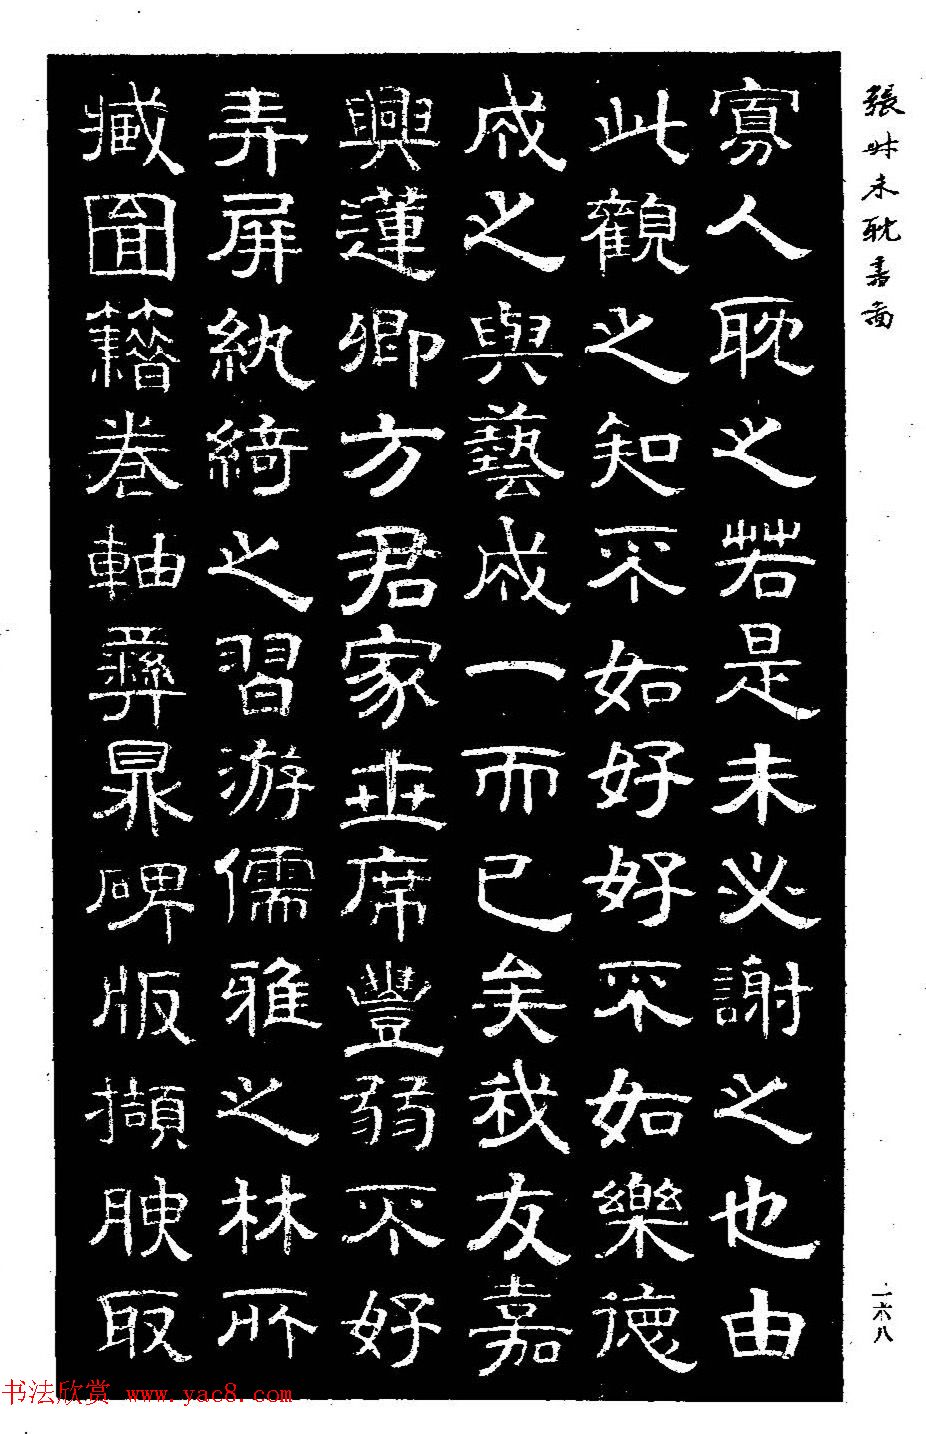 張叔未耽書啚
寡人耽之若是未必謝之也由
此觀之知不如好好不如樂德
成之與藝成一而已矣我友嘉
興蓮卿方君家世席豐弱不好
弄屏紈綺之習游儒雅之林所
臧圖籍卷軸彝鼎碑版擷腴取
一六八
书法欣赏 www.yac8.com